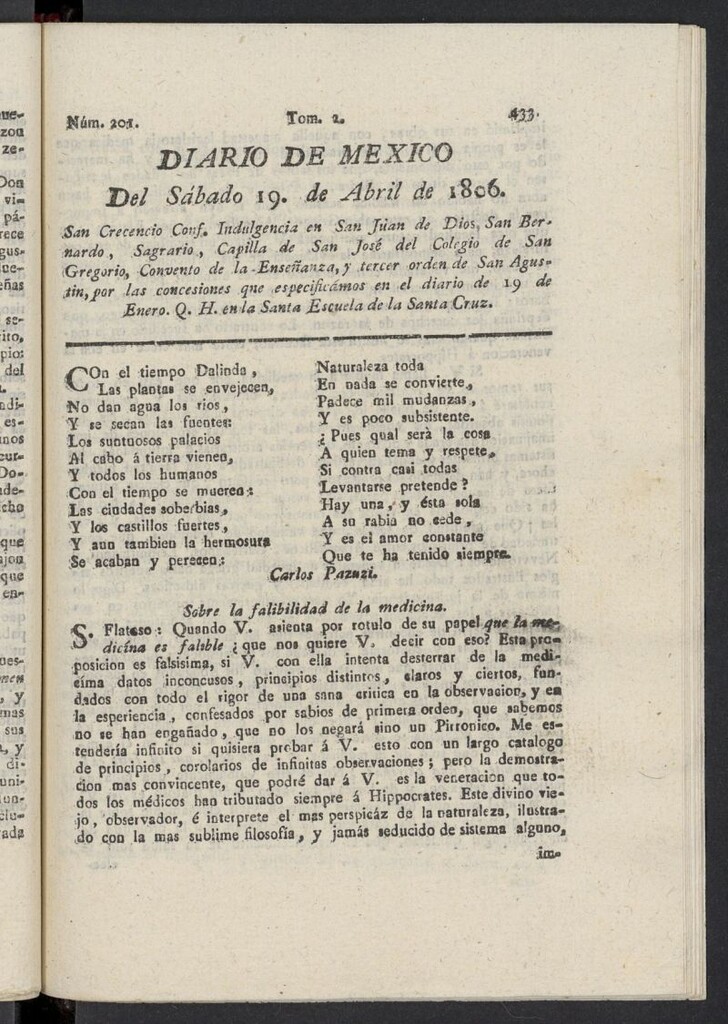 Núm. 201. Tom. 2. 433.
DIARIO DE MEXICO
Del Sábado 19. de Abril de 1806.
San Crecencio Conf. Indulgencia en San Juan de Dios, San Ber-
nardo, Sagrario, Capilla de San José del Colegio de San
Gregorio, Convento de la Enseñanza, y tercer orden de San Agus-
tin, por las concesiones que especificámos en el diario de 19 de
Enero. Q. H. en la Santa Escuela de la Santa Cruz.
COn el tiempo Dalinda,
Las plantas se envejecen,
No dan agua los rios,
Y se secan las fuentes:
Los suntuosos palacios
Al cabo á tierra vienen,
Y todos los humanos
Con el tiempo se mueren:
Las ciudades soberbias,
Y los castillos fuertes,
Y aun tambien la hermosura
Se acaban y perecen:
Naturaleza toda
En nada se convierte,
Padece mil mudanzas,
Y es poco subsistente.
¿Pues qual será la cosa
A quien tema y respete,
Si contra casi todas
Levantarse pretende?
Hay una, y ésta sola
A su rabia no cede,
Y es el amor constante
Que te ha tenido siempre.
Carlos Pazuzi.
Sobre la falibilidad de la medicina.
S. Flateso: Quando V. asienta por rotulo de su papel que la me-
dicina es falible ¿que nos quiere V. decir con eso? Esta pro-
posicion es falsisima, si V. con ella intenta desterrar de la medi-
cima datos inconcusos, principios distintos, claros y ciertos, fun-
dados con todo el rigor de una sana critica en la observacion, y en
la esperiencia, confesados por sabios de primera orden, que sabemos
no se han engañado, que no los negará sino un Pirronico. Me es-
tendería infinito si quisiera probar á V. esto con un largo catalogo
de principios, corolarios de infinitas observaciones; pero la demostra-
cion mas convincente, que podré dar á V. es la veneracion que to-
dos los médicos han tributado siempre á Hippocrates. Este divino vie-
jo, observador, é interprete el mas perspicáz de la naturaleza, ilustra-
do con la mas sublime filosofia, y jamás seducido de sistema alguno,
im-